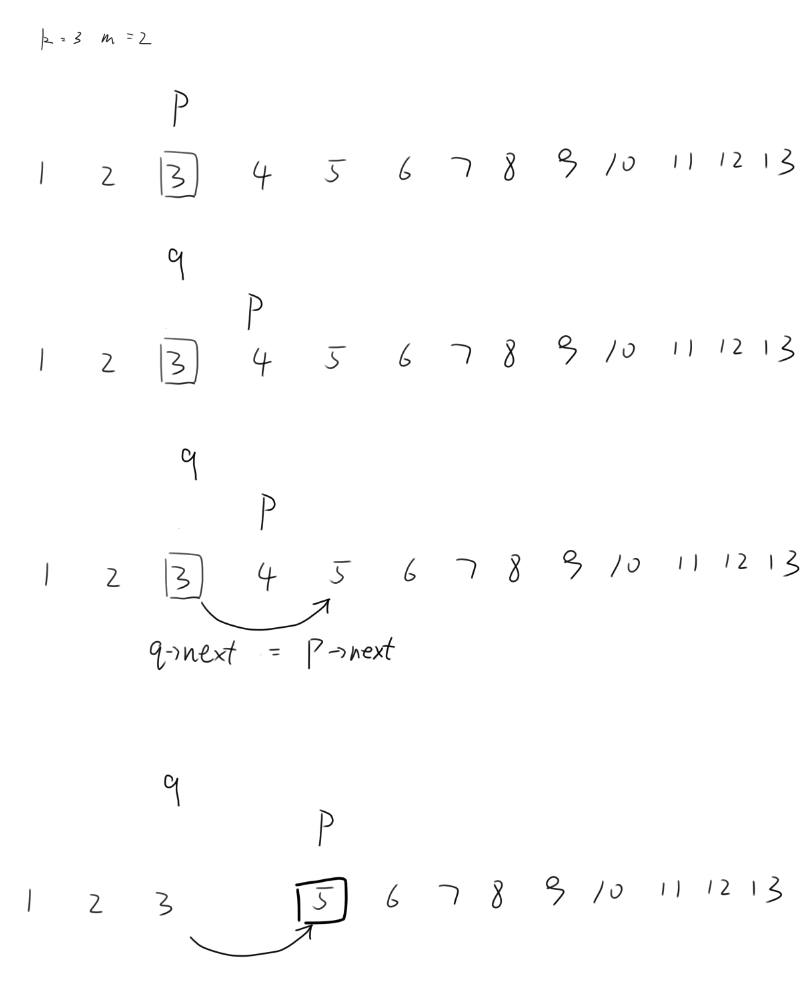 k = 3 m = 2
P
1 2 3 4 5 6 7 8 9 10 11 12 13
q
P
1 2 3 4 5 6 7 8 9 10 11 12 13
q
P
1 2 3 4 5 6 7 8 9 10 11 12 13
q→next = P→next
q
P
1 2 3 5 6 7 8 9 10 11 12 13